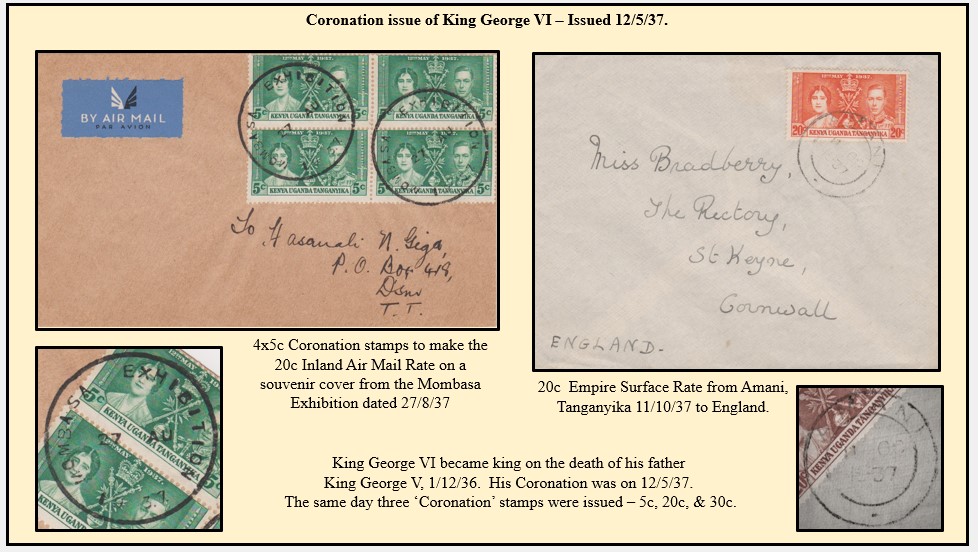 Coronation issue of King George VI – Issued 12/5/37.
BY AIR MAIL
PAR AVION
12TH MAY 1937.
5c 5c
KENYA UGANDA TANGANYIKA
KENYA UGANDA TANGANYIKA
5c 5c
KENYA UGANDA TANGANYIKA
KENYA UGANDA TANGANYIKA
EXHIBITION
MOMBASA
To Hasanali N. Giga,
P.O. Box 419,
Dsm
T.T.
12TH MAY 1937.
20c 20c
KENYA UGANDA TANGANYIKA
Miss Bradberry,
The Rectory,
St Keyne,
Cornwall
ENGLAND.
4x5c Coronation stamps to make the
20c Inland Air Mail Rate on a
souvenir cover from the Mombasa
Exhibition dated 27/8/37
20c Empire Surface Rate from Amani,
Tanganyika 11/10/37 to England.
EXHIBITION
MOMBASA
27 AU
37
5c
KENYA UGANDA TANGANYIKA
KENYA UGANDA TANGANYIKA
KENYA UGANDA TANGANYIKA
37
King George VI became king on the death of his father
King George V, 1/12/36. His Coronation was on 12/5/37.
The same day three ‘Coronation’ stamps were issued – 5c, 20c, & 30c.